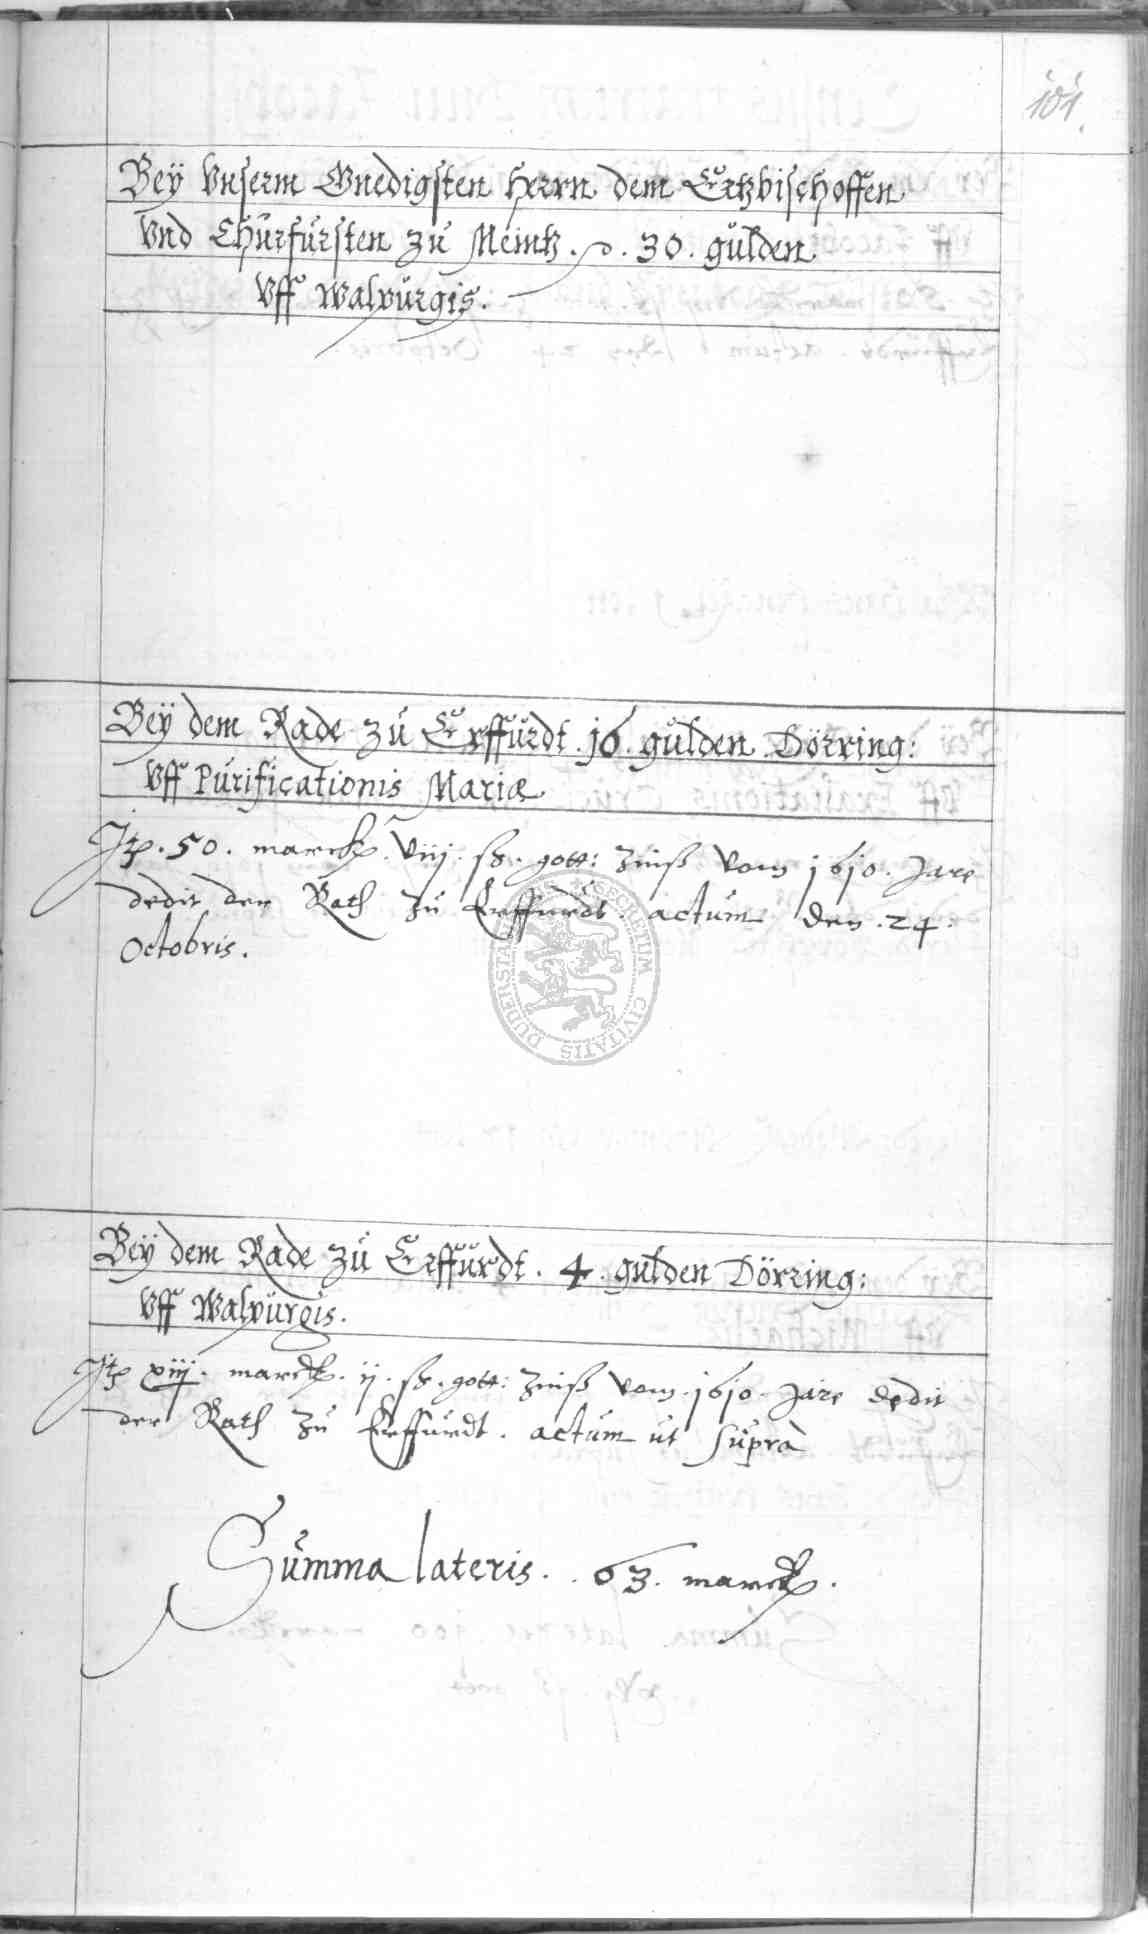 101.
Beÿ Vnserm Gnedigsten Herrn dem Ertzbischoffen
Vnd Chürfürsten zü Meintz. 30. gülden
Vff Walpürgis.
Beÿ dem Rade zü Erffürdt. 16. gülden Döring:
Vff Pürificationis Mariæ
Jtem. 50. marck. Viij. ß. gott: Zinß Vom 1610. Jare
dedit der Rath zü Erffürdt. actüm den. 24.
Octobris.
DUDERSTA SECRETUM CIVITATIS
Beÿ dem Rade zü Erffürdt. 4. gülden Döring:
Vff Walpürgis.
Jtem xiij. marck. ij. ß. gott: Zinß Vom. 1610. Jare dedit
der Rath zü Erffürdt. actüm üt süprà
Sümma lateris. 63. marck.